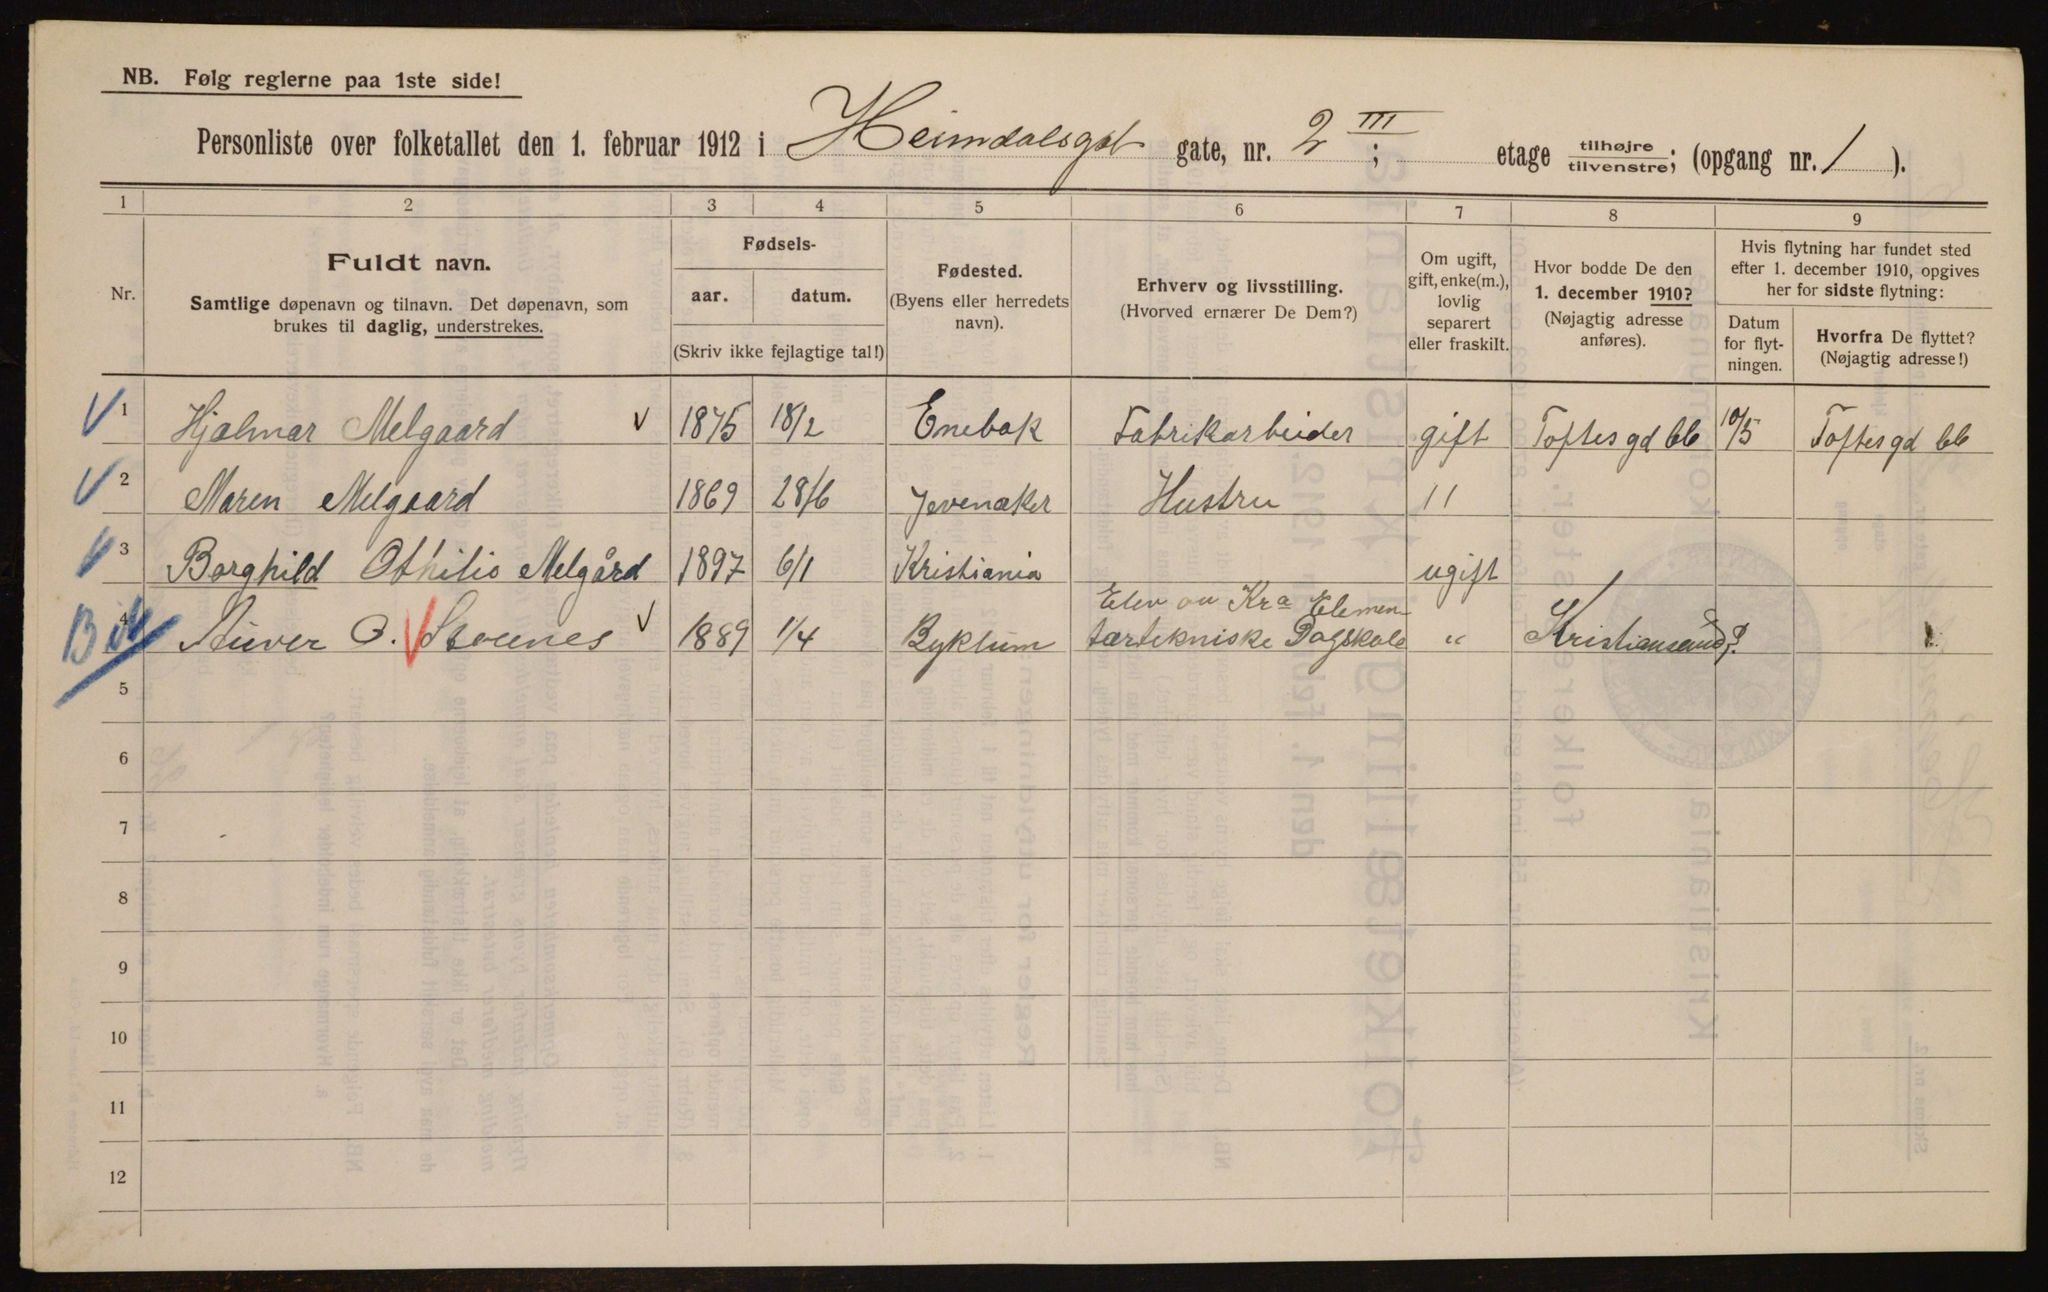 NB. Følg reglerne paa 1ste side!
Personliste over folketallet den 1. februar 1912 i Heimdalsgat gate, nr. 2 III ; etage tilhøjre tilvenstre; (opgang nr. 1 ).
1 2 3 4 5 6 7 8 9
Nr.
Fuldt navn.
Samtlige døpenavn og tilnavn. Det døpenavn, som
brukes til daglig, understrekes.
Fødsels-
aar. datum.
(Skriv ikke fejlagtige tal!)
Fødested.
(Byens eller herredets
navn).
Erhverv og livsstilling.
(Hvorved ernærer De Dem?)
Om ugift,
gift, enke(m.),
lovlig
separert
eller fraskilt.
Hvor bodde De den
1. december 1910?
(Nøjagtig adresse
anføres).
Hvis flytning har fundet sted
efter 1. december 1910, opgives
her for sidste flytning:
Datum
for flyt-
ningen.
Hvorfra De flyttet?
(Nøjagtig adresse!)
1 Hjalmar Melgaard 1875 18/2 Enebak Fabrikarbeider gift Toftesgd 66 10/5 Toftesgd 66
2 Maren Melgaard 1869 28/6 Jevenaker Hustru 11
3 Borghild Othilie Melgård 1897 6/1 Kristiania ugift
Elev av Kra Elemen-
4 O. 1889 1/4 Byklum tærtekniske Dagskole " Kristiansand?
5
6
7
8
9
10
11
12